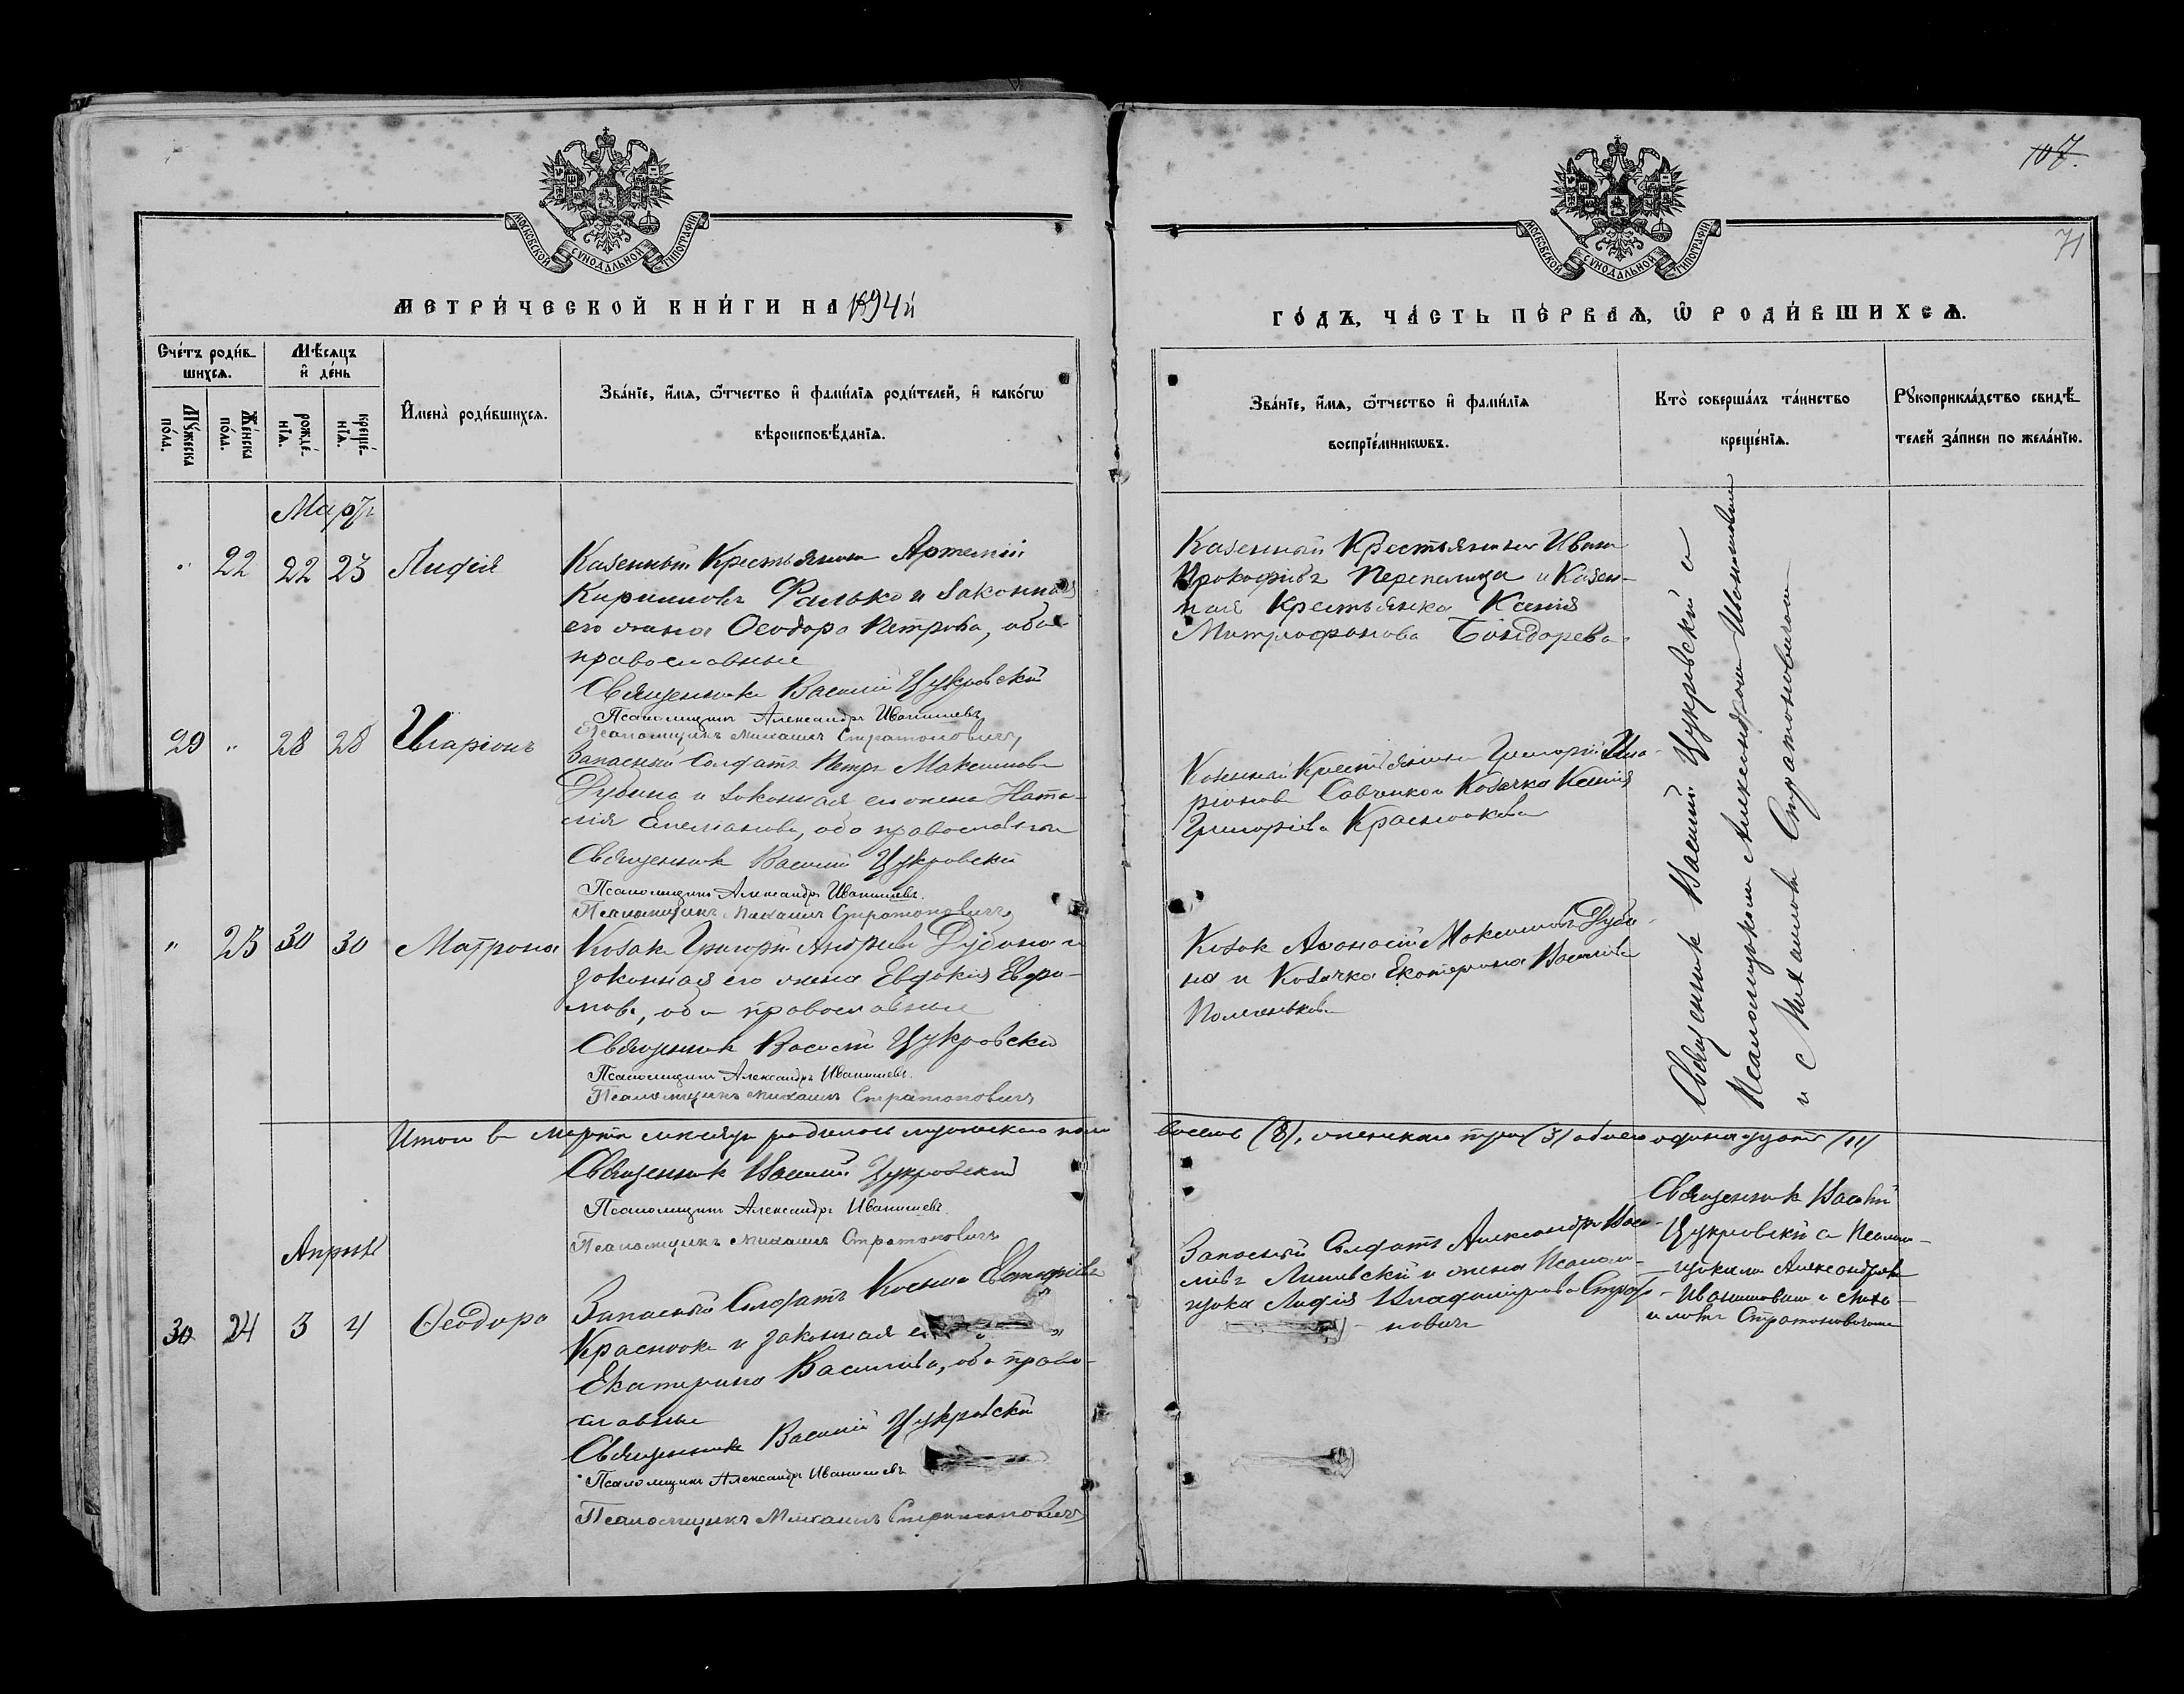 107.
71
МОСКОВСКОЙ СѴНОДАЛЬНОЙ ТИПОГРАФІИ
МЕТРИ́ЧЕСКОЙ КНИ́ГИ НА 1894 й
Сче́тъ роди́в-
шихсѧ.
Мꙋ́жеска
по́ла.
Же́нска
по́ла.
Мѣ́сѧцъ
и҆ де́нь
рожде́-
нїѧ.
креще́-
нїѧ.
И҆мена̀ роди́вшихсѧ.
Зва́нїе, и҆́мѧ, ѻ҆́тчество и҆ фами́лїѧ роди́телей, и҆ како́гѡ
вѣроисповѣ́данїѧ.
Мартъ
" 22 22 23 Лидія
Казенный Крестьянинъ Артемій
Кирилловъ Фалько и законная
его жена Ѳеодора Петрова, оба
православные
Священникъ Василій Цукровскій
Псаломщикъ Александръ Иванишевъ
Псаломщикъ Михаилъ Стратоновичъ
29 " 28 28 Иларіонъ
Запасный Солдатъ Петръ Максимовъ
Дубина и законная его жена Ната-
лія Емеліанова, оба православные
Священникъ Василій Цукровскій
Псаломщикъ Александръ Иванишевъ.
Псаломщикъ Михаилъ Стратоновичъ
" 23 30 30 Матрона
Козакъ Григорій Андреевъ Дубина и
законная его жена Евдокія Ефре-
мова, оба православные
Священникъ Василій Цукровскій
Псаломщикъ Александръ Иванишевъ.
Псаломщикъ Михаилъ Стратоновичъ
Итого въ мартѣ мѣсяцѣ родилось мужескаго пола
Священникъ Василій Цукровскій
Псаломщикъ Александръ Иванишевъ
Псаломщикъ Михаилъ Стратоновичъ
Апрѣль
30 24 3 4 Ѳеодора
Запасный Солдатъ Косьма
Красноокъ и законная его
Екатерина Васильева, оба право-
славные
Священникъ Василій Цукровскій
Псаломщикъ Александръ Иванишевъ
Псаломщикъ Михаилъ Стратоновичъ
МОСКОВСКОЙ СѴНОДАЛЬНОЙ ТИПОГРАФІИ
ГО́ДЪ, ЧА́СТЬ ПЕ́РВАѦ, Ѽ РОДИ́ВШИХСѦ.
Зва́нїе, и҆́мѧ, ѻ҆́тчество и҆ фами́лїѧ
воспрїе́мникѡвъ.
Кто̀ соверша́лъ та́инство
креще́нїѧ.
Рꙋкоприкла́дство свидѣ́-
телей за́писи по жела́нїю.
Казенный Крестьянинъ Иванъ
Прокофіевъ Перепелица и Казен-
ная Крестьянка Ксенія
Митрофанова Бондарева
Казенный Крестьянинъ Григорій Ила-
ріоновъ Савченко и Козачка Ксенія
Григоріева Красноокова
Козакъ Аѳанасій Максимовъ Дуби-
на и Козачка Екатерина Васильева
Священникъ Василій Цукровскій съ
Псаломщикомъ Александромъ Иванишевымъ
и съ Михаиломъ Стратоновичемъ
восемь (8), женскаго три (3) обоего одинадцать (11)
Запасный Солдатъ Александръ Васи-
ліевъ Линевскій и жена Псалом-
щика Лидія Владимірова Страто-
новичъ
Священникъ Василій
Цукровскій съ Псалом-
щиками Александромъ
Иванишевымъ и Миха-
иломъ Стратоновичемъ